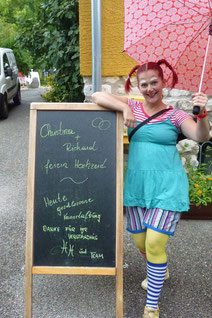 Christina
Richard
feiern Hochzeit
Heute
geschlossene
Veranstaltung
DANKE FÜR IHR
VERSTÄNDNIS
und TEAM